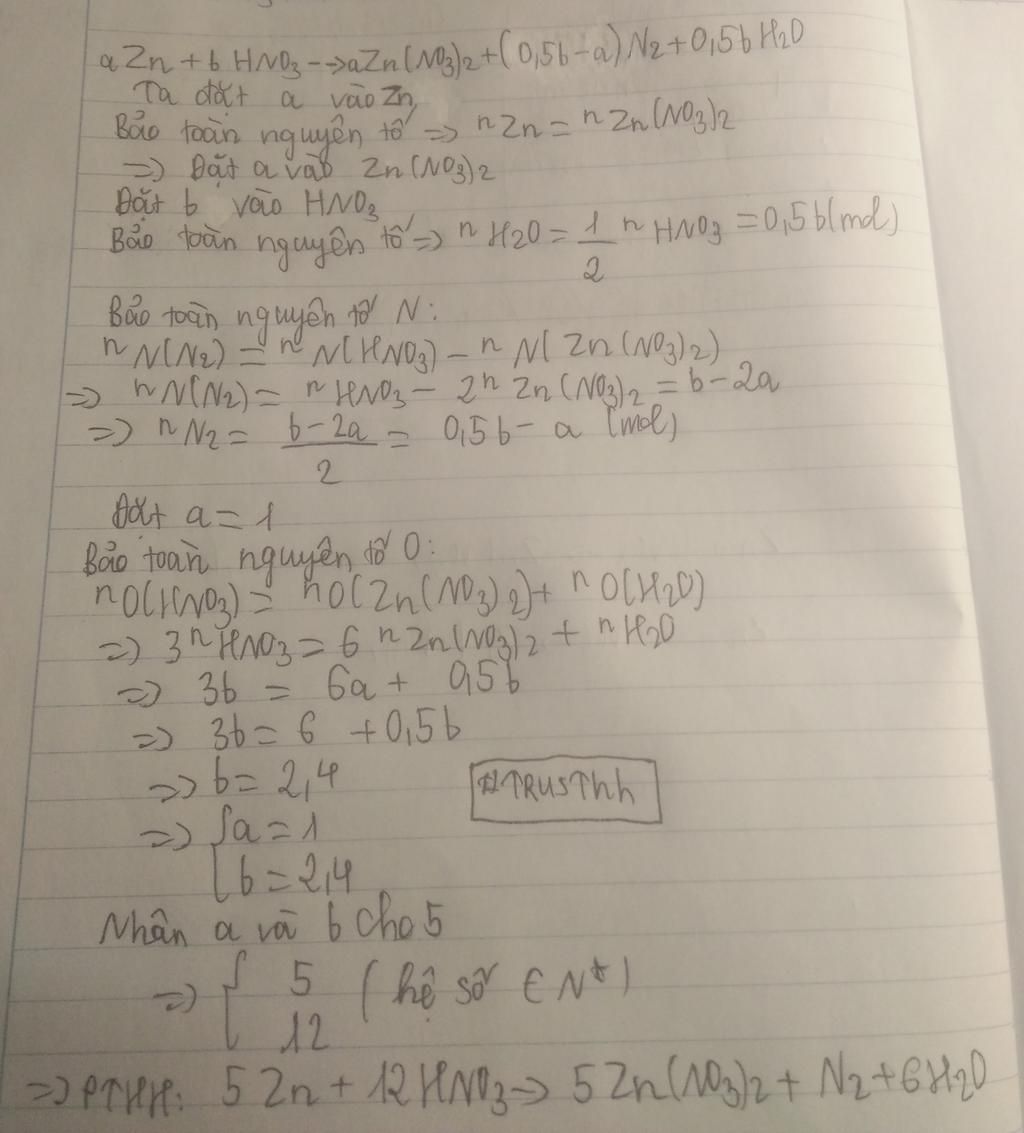 aZn + b HNO3 --> aZn(NO3)2 + (0,5b-a) N2 + 0,5b H2O
Ta đặt a vào Zn
Bảo toàn nguyên tố => nZn = nZn(NO3)2
=> Đặt a vào Zn(NO3)2
Đặt b vào HNO3
Bảo toàn nguyên tố => nH2O = 1/2 nHNO3 = 0,5b(mol)
Bảo toàn nguyên tố N:
nN(N2) = nN(HNO3) - nN(Zn(NO3)2)
=> nN(N2) = nHNO3 - 2nZn(NO3)2 = b-2a
=> nN2 = (b-2a)/2 = 0,5b - a (mol)
Đặt a = 1
Bảo toàn nguyên tố O:
nO(HNO3) = nO(Zn(NO3)2) + nO(H2O)
=> 3nHNO3 = 6nZn(NO3)2 + nH2O
=> 3b = 6a + 0,5b
=> 3b = 6 + 0,5b
=> b = 2,4
#TRUSThh
=> { a = 1
b = 2,4
Nhân a và b cho 5
=> { 5 (hệ số ∈ N*)
12
=> PTHH: 5Zn + 12HNO3 -> 5Zn(NO3)2 + N2 + 6H2O